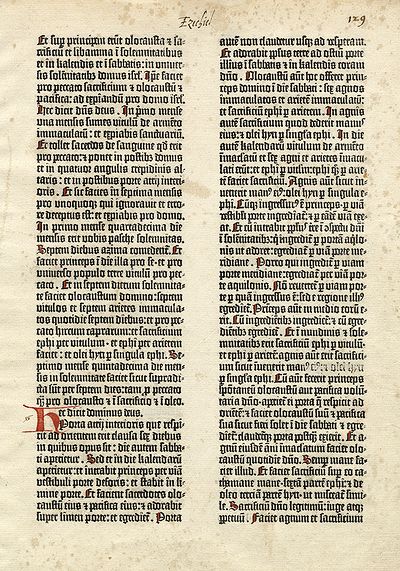 Ezechiel
129
Et sup principem erūt olocausta ⁊ sa-
crificiū et libamina ī solennitatibus
et in kalendis et ī sabbatis: in univer-
sis solēnitatibus domus isrl. Ipse faciet
pro peccato sacrificium ⁊ olocaustū ⁊
pacifica: ad expiandū pro domo isrl.
Hec dicit dūs deus. In primo mense
una mensis sumes vitulū de armēto
immaculatū: et expiabis sanctuariū.
Et tollet sacerdos de sanguine qđ erit
pro peccato: ⁊ ponet in postibꝫ domus
et in quatuor angulis crepidinis al-
taris: et in postibus porte atrij interi-
oris. Et sic facies in septima mensis
pro unoquoqꝫ qui ignoravit et erro-
re deceptus est: et expiabis pro domo.
In primo mense quartadecima die
mensis erit vobis pasche solennitas.
Septem diebus azima comedent. Et
faciet princeps ī die illa pro se et pro
universo populo terre vitulū pro pec-
cato. Et in septem dierum solennita-
te faciet olocaustum domino: septem
vitulos et septem arietes immacula-
tos quotidie septem diebus: et pro pec-
cato hircum caprarum: et sacrificium
ephi per vitulum et ephi per arietem
faciet: et olei hyn ꝑ singula ephi. Se-
ptimo mense quintadecima die men-
sis in solennitate faciet sicut supradi-
cta sūt per septem dies: tam ꝓ peccato
qꝫ pro olocausto ⁊ ī sacrificio ⁊ ī oleo.
Hec dicit dominus deus.
Porta atrij interioris que respi-
cit ad orientem erit clausa sex diebus
in quibus opus fit: die autem sabba-
ti aperietur. Sed et in die kalendarū
aperietur: et intrabit princeps per viā
vestibuli porte deforis: et stabit in li-
mine porte. Et facient sacerdotes olo-
caustū eius ⁊ pacifica eius: ⁊ adorabit
super limen porte: et egredietur. Porta
autē non claudetur usqꝫ ad vesperam.
Et adorabit ppłus terre ad ostiū porte
illius ī sabbatis ⁊ in kalendis coram
dño. Olocaustū aūt hoc offeret prin-
ceps domino ī die sabbati: sex agnos
immaculatos et arietē immaculatū:
et sacrificiū ephi ꝑ arietem. In agnis
autē sacrificium quod dederit manus
eius: ⁊ olei hyn ꝑ singła ephi. In die
autē kalendarū vitulum de armēto
īmaculatū et sex agni et arietes īmacu-
lati erunt: et ephi ꝑ vitulum: ephi qꝫ ꝑ arie-
tē faciet sacrificiū. Agnis autē sicut in-
venerit manus eius: ⁊ olei hyn ꝑ singula e-
phi. Cūqꝫ ingressurus est princeps ꝑ viā
vestibli porte ingrediatur: ⁊ ꝑ eādē viā exe-
at. Et cū intrabit ppłus tre ī cōspectu dñi
ī solēnitatibꝫ: qui ingredit ꝑ portā aqlo-
nis ut adoret: egrediatur ꝑ viam porte me-
ridiane. Porro qui ingredit ꝑ viam
porte meridiane: egrediatur per viam por-
te aquilonis. Nō revertet ꝑ viam por-
te ꝑ quā ingressus est: sed e regione illius
egrediet. Princeps autē in medio eorū e-
rit. Cū ingredientibꝫ ingrediet: ⁊ cū egre-
dientibꝫ egrediet. Et ī nundinis ⁊ sole-
nitatibꝫ erit sacrificiū ephi ꝑ vitulū
et ephi per arietē: agnis aūt erit sacrifici-
um sicut invenerit manus eius: et olei hyn
ꝑ singula ephi. Cū aūt fecerit princeps
spōtaneū olocaustū aut pacifica volū-
taria dño: aperiet ei porta q̄ respicit ad
orientē: ⁊ faciet olocaustū suū ⁊ pacifica
sua sicut fieri solet ī die sabbati: ⁊ egre-
diet: claudetqꝫ porta postqꝫ exierit. Et a-
gnū eiusdē anni īmaculatum faciet olo-
caustū quotidie dño. Semp mane faci-
et illud. Et faciet sacrificiū sup eo ca-
thmane mane: sextā partē ephi: ⁊ de
oleo terciā partē hyn: ut misceat simi-
le. Sacrificiū dño legitimū: iuge atqꝫ
ppetuū. Faciet agnum et sacrificium